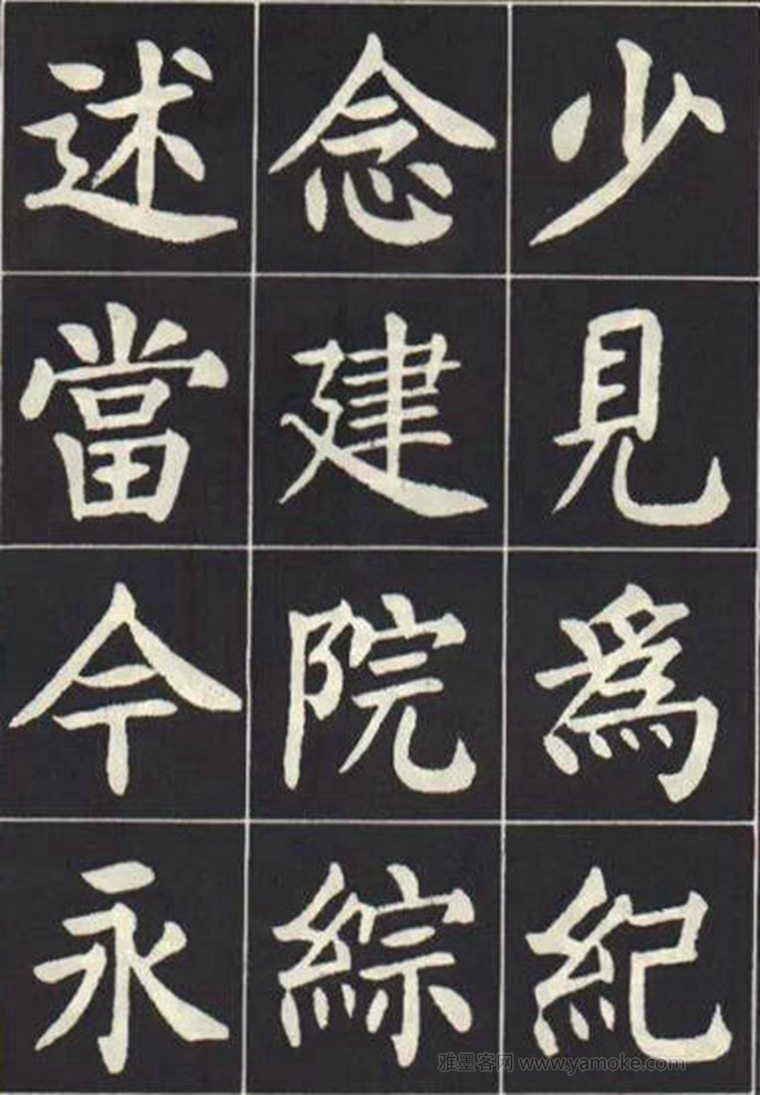 少見為紀
念建院綜
述當今永
雅墨客网 www.yamoke.com